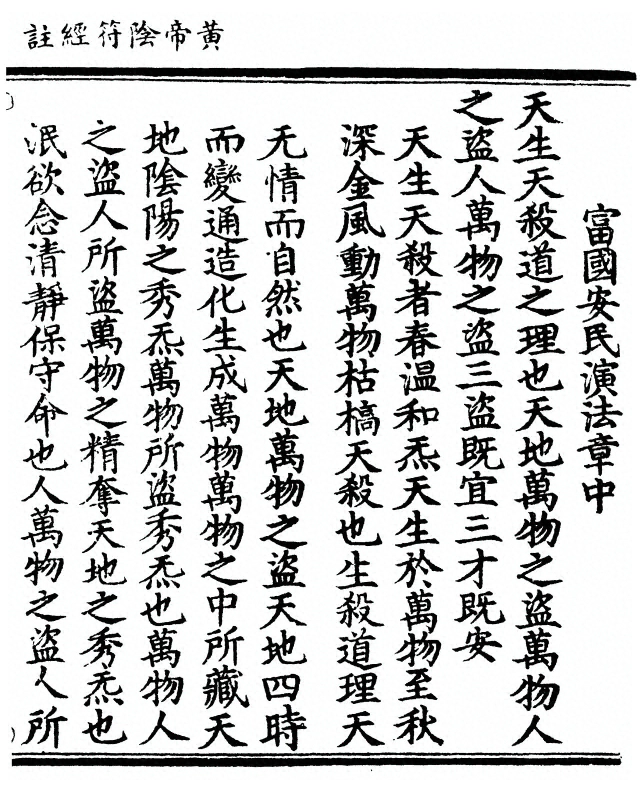 黃帝陰符經註
富國安民演法章中
天生天殺道之理也天地萬物之盜萬物人
之盜人萬物之盜三盜既宜三才既安
天生天殺者春温和炁天生於萬物至秋
深金風動萬物枯槁天殺也生殺道理天
无情而自然也天地萬物之盜天地四時
而變通造化生成萬物萬物之中所藏天
地陰陽之秀炁萬物所盜秀炁也萬物人
之盜人所盜萬物之精奪天地之秀炁也
泯欲念清靜保守命也人萬物之盜人所